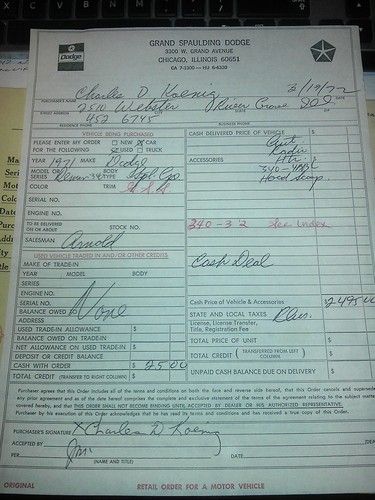 GRAND SPAULDING DODGE
3300 W. GRAND AVENUE
CHICAGO, ILLINOIS 60651
CA 7-3300 — HU 6-4330
Dodge
Charles D Koenig
PURCHASER'S NAME
DATE
2510 Webster River Grove Ill
STREET ADDRESS CITY STATE ZIP
452 6745
RESIDENCE PHONE BUSINESS PHONE
VEHICLE BEING PURCHASED
CASH DELIVERED PRICE OF VEHICLE $
PLEASE ENTER MY ORDER FOR THE FOLLOWING NEW CAR
USED TRUCK
ACCESSORIES
YEAR 1971 MAKE Dodge
MODEL OR SERIES Demon 340 BODY TYPE
COLOR TRIM
Hood Scoop
SERIAL NO.
ENGINE NO.
340-32 See Index
TO BE DELIVERED ON OR ABOUT STOCK NO.
SALESMAN Arnold
USED VEHICLE TRADED IN AND/OR OTHER CREDITS
Cash Deal
MAKE OF TRADE-IN
YEAR MODEL BODY
SERIES
ENGINE NO.
SERIAL NO. None
Cash Price of Vehicle & Accessories
BALANCE OWED TO
STATE AND LOCAL TAXES Plus.
ADDRESS
License, License Transfer, Title, Registration Fee
USED TRADE-IN ALLOWANCE $
BALANCE OWED ON TRADE-IN $
TOTAL PRICE OF UNIT $
NET ALLOWANCE ON USED TRADE-IN $
TOTAL CREDIT (TRANSFERRED FROM LEFT COLUMN)
DEPOSIT OR CREDIT BALANCE
CASH WITH ORDER $ 25 00
UNPAID CASH BALANCE DUE ON DELIVERY $
TOTAL CREDIT (TRANSFER TO RIGHT COLUMN) $
Purchaser agrees that this Order includes all of the terms and conditions on both the face and reverse side hereof, that this Order cancels and supersedes
any prior agreement and as of the date hereof comprises the complete and exclusive statement of the terms of the agreement relating to the subject matters
covered hereby, and that THIS ORDER SHALL NOT BECOME BINDING UNTIL ACCEPTED BY DEALER OR HIS AUTHORIZED REPRESENTATIVE.
Purchaser by his execution of this Order acknowledges that he has read its terms and conditions and has received a true copy of this Order.
PURCHASER'S SIGNATURE X Charles D Koenig
ACCEPTED BY
PER DATE
(NAME AND TITLE)
ORIGINAL RETAIL ORDER FOR A MOTOR VEHICLE